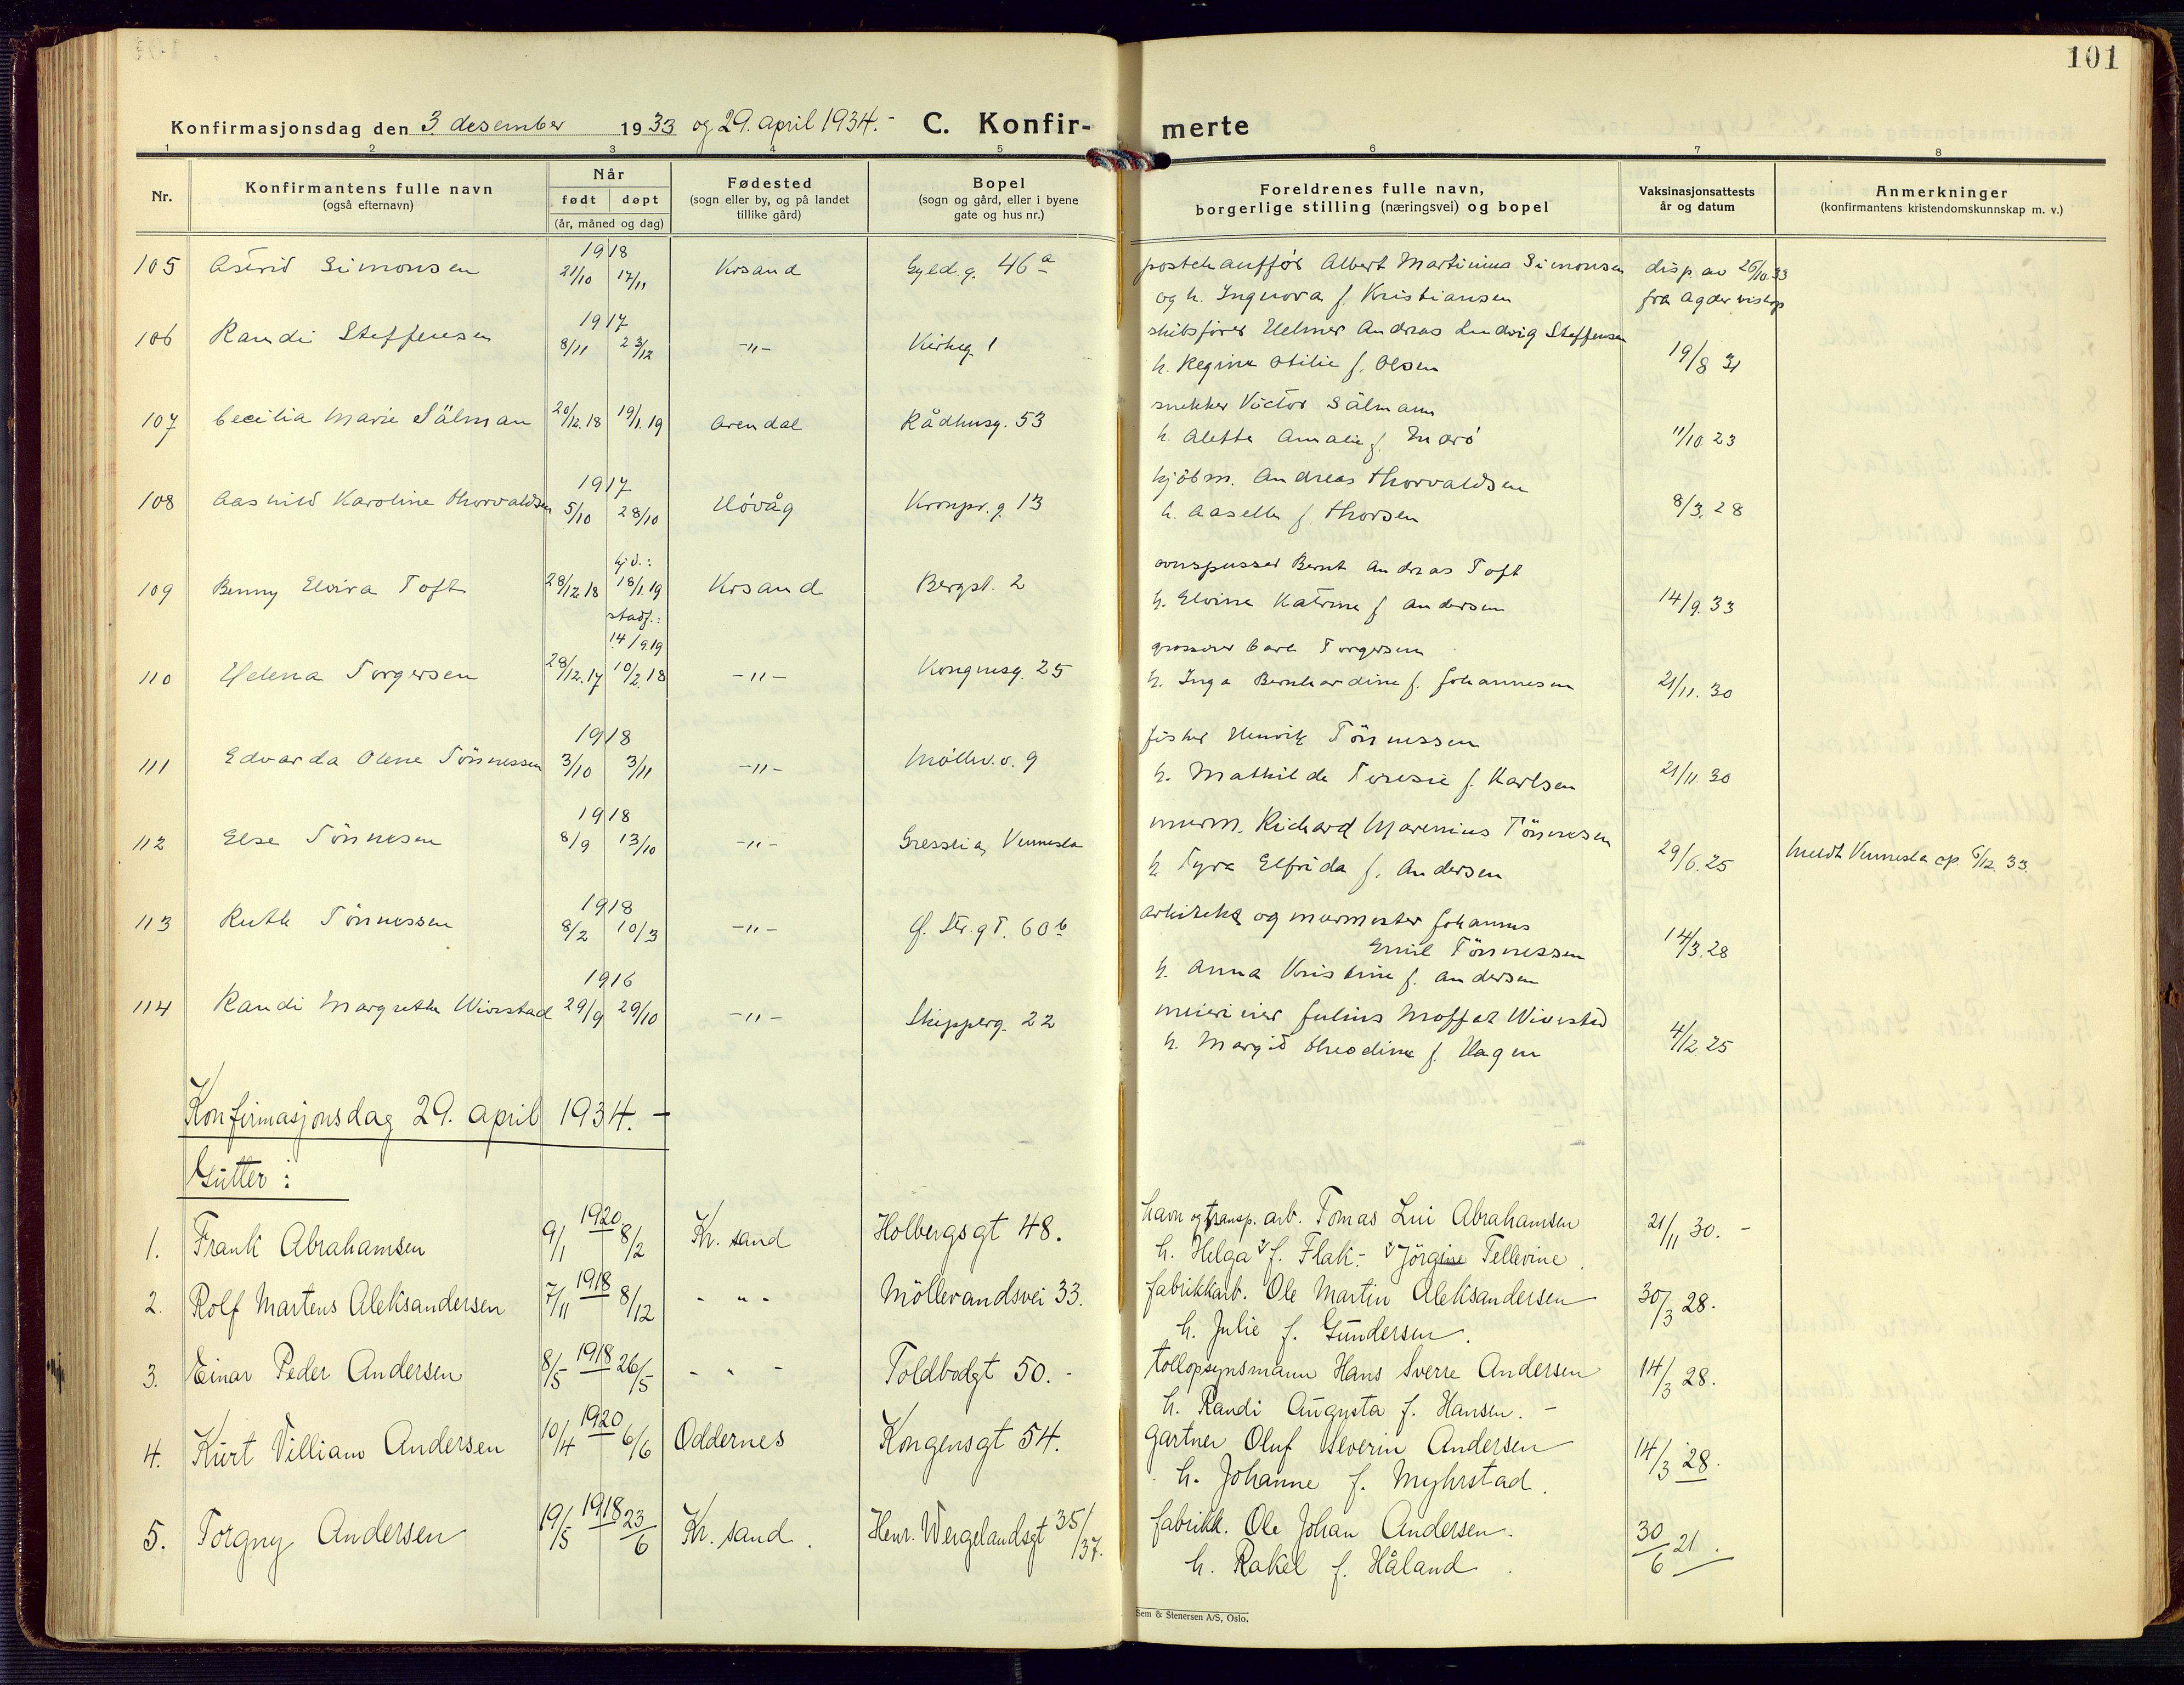 101
Konfirmasjonsdag den 3 desember 1933 og 29. april 1934.- C. Konfir- merte
1 2 3 4 5 6 7 8
Nr.
Konfirmantens fulle navn
(også efternavn)
Når
født døpt
(år, måned og dag)
Fødested
(sogn eller by, og på landet
tillike gård)
Bopel
(sogn og gård, eller i byene
gate og hus nr.)
Foreldrenes fulle navn,
borgerlige stilling (næringsvei) og bopel
Vaksinasjonsattests
år og datum
Anmerkninger
(konfirmantens kristendomskunnskap m. v.)
1918
105 Astrid Simonsen 21/10 17/11 Krsand Gyld.g. 46a postchauffør Albert Martinius Simonsen disp. av 25/10.33
og h. Ingvora f. Kristiansen fra Agder biskop
1917
106 Randi Steffensen 8/11 23/12 -"- Kirkeg. 1 skibsfører Helmer Andreas Ludvig Steffensen
h. Regine Otilie f. Olsen 19/8 31
107 Cecilia Marie Sälman 20/12.18 19/1.19 Arendal Rådhusg. 53 snekker Victor Sälmann
h. Alette Amalie f. Marö 11/10 23
1917
108 Aashild Karoline Thorvaldsen 5/10 28/10 Høvåg Kronpr.g. 13 kjøbm. Andreas Thorvaldsen
h. Aaselle f. Thorsen 8/3.28
hj.d.:
109 Benny Elvira Toft 28/12 18 18/1.19 Krsand Bergst. 2 Bernt Andreas Toft
h. Elvine Katrine f. Andersen 14/9.33
stadf.:
14/9.19
110 Helena Torgersen 28/12.17 10/2.18 -"- Kongensg. 25 grosserer Carl Torgersen
h. Inga Bernhardine f. Johannesen 21/11.30
1918
111 Edvarda Olene Tönnessen 3/10 3/11 -"- Möllev.v. 9 fisker Henrik Tönnessen
h. Mathilde Teresie f. Karlsen 21/11.30
1918
112 Else Tönnesen 8/9 13/10 -"- Gresslia, Vennesla murm. Richard Marenius Tönnesen
h. Tyra Elfrida f. Andersen 29/6.25 meldt Vennesla sp. 6/12.33.
1918
113 Ruth Tönnessen 8/2 10/3 -"- Ø. Str.gt. 60b arkitekt og murmester Johannes
Emil Tönnessen
h. Anna Kristine f. Andersen 14/3.28
1916
114 Randi Margrethe Wivestad 29/9 29/10 -"- Skipperg. 22 meierieier Julius Moffat Wivestad
h. Margit Theodine f. Hagen 4/2 25
Konfirmasjonsdag 29. april 1934.-
Gutter:
1. Frank Abrahamsen 9/1 1920 8/2 Kr. sand Holbergsgt 48. havn og transp. arb. Tomas Lui Abrahamsen 21/11 30.-
h. Helga f. Flak.- Jörgine Tellevine.
2. Rolf Martens Aleksandersen 7/11 1918 8/12 - " - Möllevandsvei 33. fabrikkarb. Ole Martin Aleksandersen 30/3 28.
h. Julie f. Gundersen.
3. Einar Peder Andersen 8/5 1918 26/5 - " - Toldbodgt 50.- tollopsynsmann Hans Sverre Andersen 14/3 28.
h. Randi Augusta f. Hansen.-
4. Kurt Villiam Andersen 10/4 1920 6/6 Oddernes Kongensgt 54. gartner Oluf Severin Andersen 14/3 28.
h. Johanne f. Myhrstad.
5. Torgny Andersen 19/5 1918 23/6 Kr. sand. Henr. Wergelandsgt 35/37. fabrikk. Ole Johan Andersen. 30/6 21.
h. Rakel f. Håland.
Sem & Stenersen A/S, Oslo.